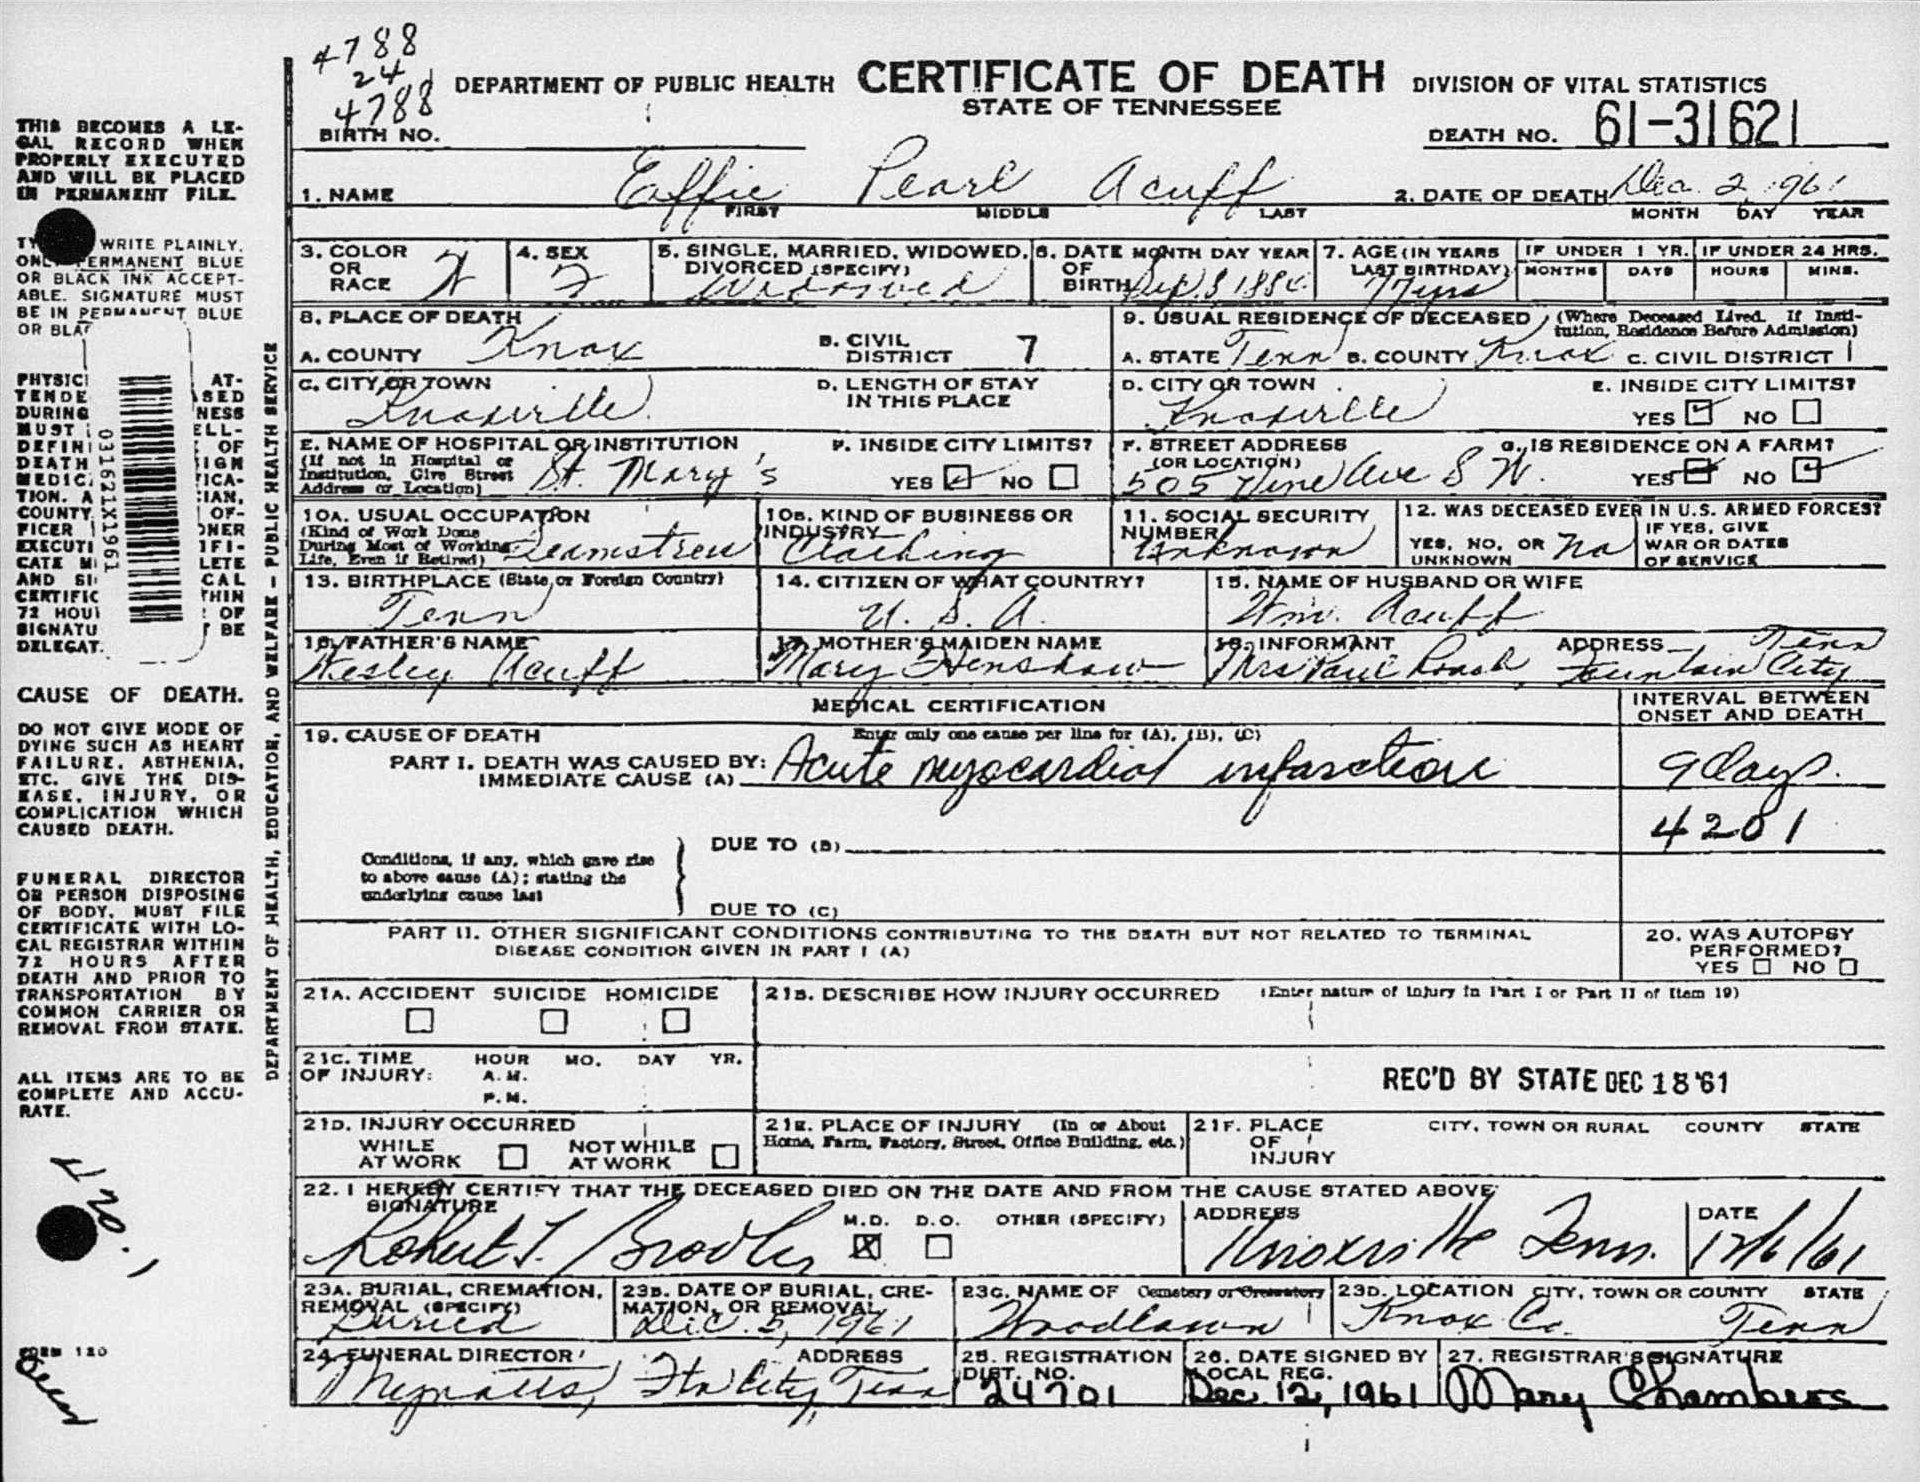 4788
24
4788
DEPARTMENT OF PUBLIC HEALTH CERTIFICATE OF DEATH DIVISION OF VITAL STATISTICS
STATE OF TENNESSEE
BIRTH NO.
DEATH NO. 61-31621
THIS BECOMES A LE-
GAL RECORD WHEN
PROPERLY EXECUTED
AND WILL BE PLACED
IN PERMANENT FILE.
WRITE PLAINLY.
PERMANENT BLUE
OR BLACK INK ACCEPT-
ABLE. SIGNATURE MUST
BE IN PERMANENT BLUE
OR
031621X1961
CAUSE OF DEATH.
DO NOT GIVE MODE OF
DYING SUCH AS HEART
FAILURE, ASTHENIA,
ETC. GIVE THE DIS-
EASE, INJURY, OR
COMPLICATION WHICH
CAUSED DEATH.
FUNERAL DIRECTOR
OR PERSON DISPOSING
OF BODY, MUST FILE
CERTIFICATE WITH LO-
CAL REGISTRAR WITHIN
72 HOURS AFTER
DEATH AND PRIOR TO
TRANSPORTATION BY
COMMON CARRIER OR
REMOVAL FROM STATE.
ALL ITEMS ARE TO BE
COMPLETE AND ACCU-
RATE.
420.1
FORM 120
DEPARTMENT OF HEALTH, EDUCATION, AND WELFARE - PUBLIC HEALTH SERVICE
1. NAME Effie Pearl Acuff 2. DATE OF DEATH Dec. 2, 1961
FIRST MIDDLE LAST MONTH DAY YEAR
3. COLOR OR RACE W
4. SEX F
5. SINGLE, MARRIED, WIDOWED, DIVORCED (SPECIFY) Widowed
6. DATE OF BIRTH MONTH DAY YEAR
7. AGE (IN YEARS LAST BIRTHDAY) 77 yrs
IF UNDER 1 YR. MONTHS DAYS
IF UNDER 24 HRS. HOURS MINS.
8. PLACE OF DEATH
A. COUNTY Knox B. CIVIL DISTRICT 7
9. USUAL RESIDENCE OF DECEASED (Where Deceased Lived. If Insti-
tution, Residence Before Admission)
A. STATE Tenn B. COUNTY Knox C. CIVIL DISTRICT 1
C. CITY OR TOWN Knoxville
D. LENGTH OF STAY IN THIS PLACE
D. CITY OR TOWN Knoxville
E. INSIDE CITY LIMITS? YES NO
E. NAME OF HOSPITAL OR INSTITUTION St. Mary's
(If not in Hospital or Institution, Give Street Address or Location)
F. INSIDE CITY LIMITS? YES NO
F. STREET ADDRESS (OR LOCATION) 505 Vine Ave S W.
G. IS RESIDENCE ON A FARM? YES NO
10A. USUAL OCCUPATION Seamstress
(Kind of Work Done During Most of Working Life, Even if Retired)
10B. KIND OF BUSINESS OR INDUSTRY Clothing
11. SOCIAL SECURITY NUMBER Unknown
12. WAS DECEASED EVER IN U.S. ARMED FORCES?
YES, NO, OR UNKNOWN No
IF YES, GIVE WAR OR DATES OF SERVICE
13. BIRTHPLACE (State or Foreign Country) Tenn
14. CITIZEN OF WHAT COUNTRY? U. S. A.
15. NAME OF HUSBAND OR WIFE Wm. Acuff
16. FATHER'S NAME Wesley Acuff
17. MOTHER'S MAIDEN NAME Mary Henshaw
18. INFORMANT Mrs Paul Roach ADDRESS Fountain City Tenn
MEDICAL CERTIFICATION
INTERVAL BETWEEN
ONSET AND DEATH
19. CAUSE OF DEATH Enter only one cause per line for (A), (B), (C)
PART I. DEATH WAS CAUSED BY:
IMMEDIATE CAUSE (A) Acute myocardial infarction 9 days.
4201
DUE TO (B)
Conditions, if any, which gave rise
to above cause (A); stating the
underlying cause last
DUE TO (C)
PART II. OTHER SIGNIFICANT CONDITIONS CONTRIBUTING TO THE DEATH BUT NOT RELATED TO TERMINAL
DISEASE CONDITION GIVEN IN PART I (A)
20. WAS AUTOPSY
PERFORMED?
YES NO
21A. ACCIDENT SUICIDE HOMICIDE
21B. DESCRIBE HOW INJURY OCCURRED (Enter nature of injury in Part I or Part II of Item 19)
21C. TIME OF INJURY: HOUR MO. DAY YR.
A.M.
P.M.
REC'D BY STATE DEC 18 '61
21D. INJURY OCCURRED
WHILE AT WORK NOT WHILE AT WORK
21E. PLACE OF INJURY (In or About
Home, Farm, Factory, Street, Office Building, etc.)
21F. PLACE OF INJURY CITY, TOWN OR RURAL COUNTY STATE
22. I HEREBY CERTIFY THAT THE DECEASED DIED ON THE DATE AND FROM THE CAUSE STATED ABOVE
SIGNATURE Robert L. M.D. D.O. OTHER (SPECIFY)
ADDRESS Knoxville Tenn.
DATE 12/6/61
23A. BURIAL, CREMATION, REMOVAL (SPECIFY) Buried
23B. DATE OF BURIAL, CRE-
MATION, OR REMOVAL Dec. 5, 1961
23C. NAME OF Cemetery or Crematory Woodlawn
23D. LOCATION CITY, TOWN OR COUNTY STATE
Knox Co. Tenn
24. FUNERAL DIRECTOR ADDRESS
Mynatts, Ftn City, Tenn
25. REGISTRATION DIST. NO. 24701
26. DATE SIGNED BY LOCAL REG. Dec. 12, 1961
27. REGISTRAR'S SIGNATURE Mary Chambers